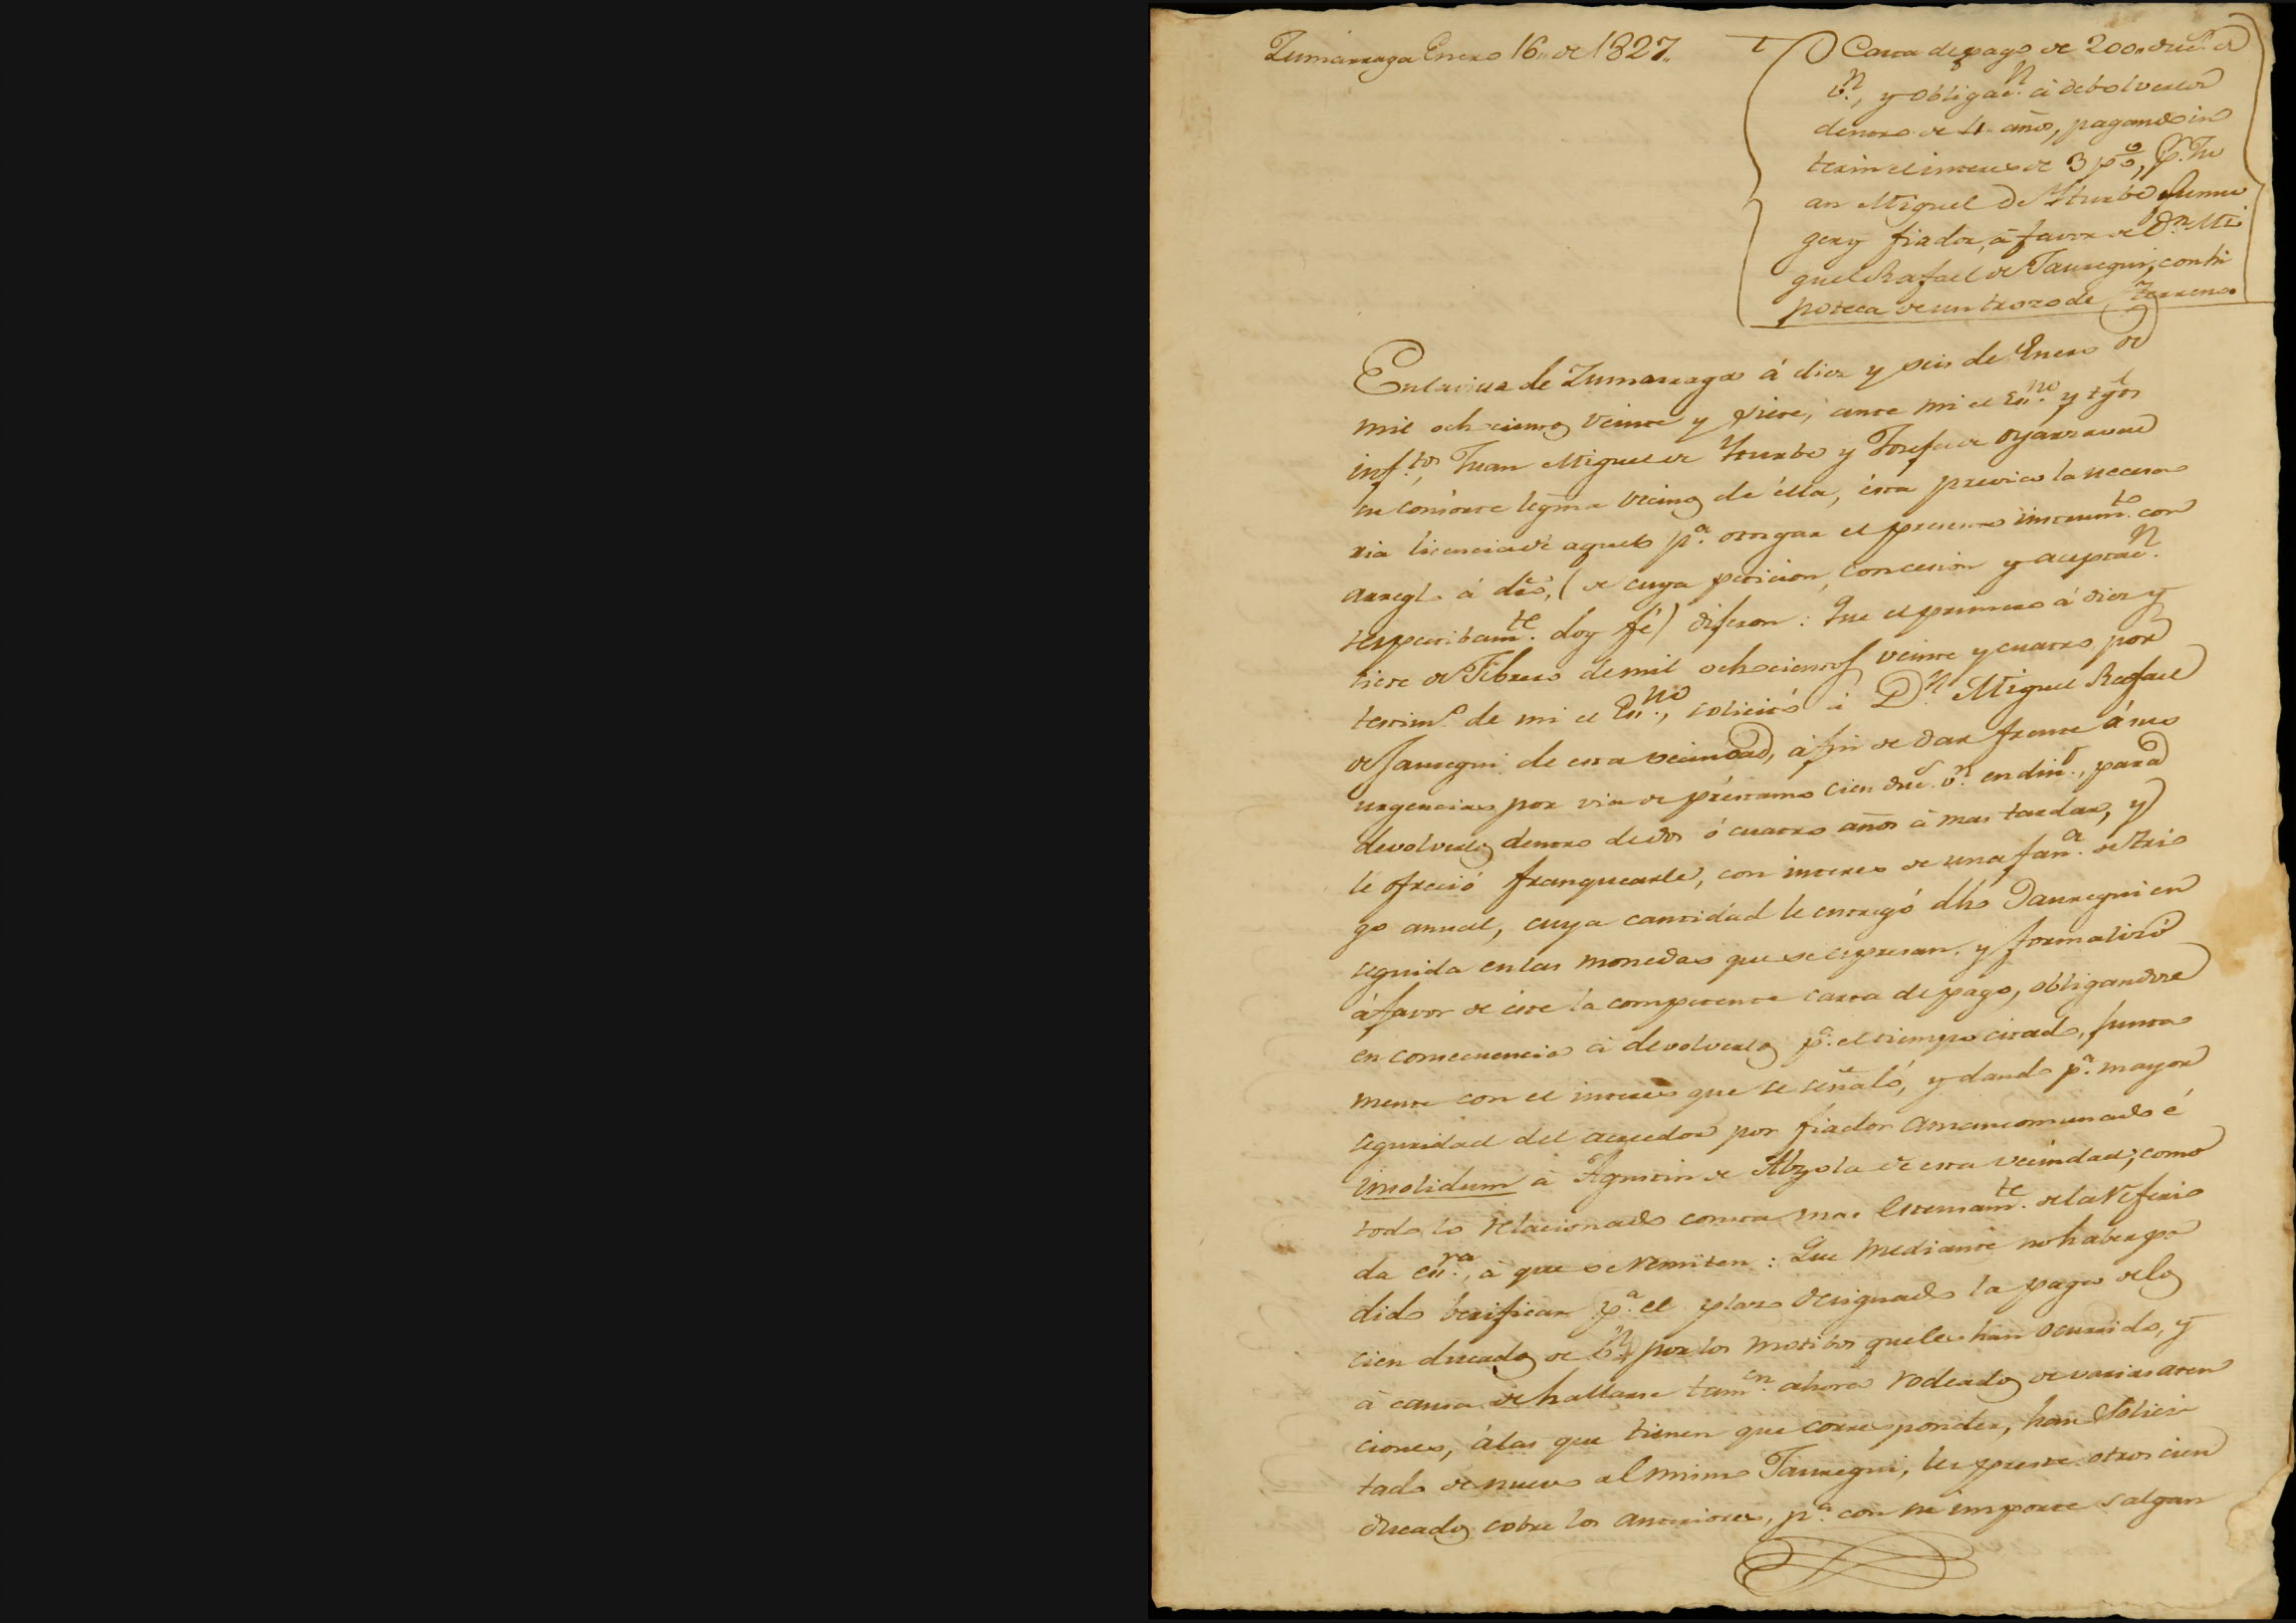 Zumarraga Enero 16,, de 1827,,
Carta de pago de 200,, duc.s de
v.n, y obligac.n á debolverlos
dentro de 4 años, pagando in
terin el interes de 3 p%, p.r Ju
an Miguel de Yturbe su mu
ger y fiador, á favor de D.n Mi
guel Rafael de Jauregui, con hi
poteca de un trozo de terreno.
En la villa de Zumarraga á diez y seis de Enero de
mil ochocientos veinte y siete, ante mi el Es.no y tgos
infr.tos, Juan Miguel de Yturbe y Josefa de Oyarzaval
su consorte legma vecinos de ella, esta previa la necesa
ria licencia de aquel p.a otorgar el presente instrum.to con
arreglo á dro, (de cuya peticion, concesion y aceptac.n
respectibam.te doy fé) dijeron: Que el primero á diez y
siete de Febrero de mil ochocientos veinte y cuatro por
testim.o de mi el Es.no, solicitó á D.n Miguel Rafael
de Jauregui de esta vecindad, á fin de dar frente á sus
urgencias por via de préstamo cien duc.s v.n en din.o, para
devolverlos dentro de dos ó cuatro años á mas tardar, y
le ofreció franquearle, con interes de una fan.a de tri
go anual, cuya cantidad le entregó dho Jauregui en
seguida en las monedas que se espresan, y formalizó
á favor de este la competente carta de pago, obligandose
en consecuencia á devolverlos p.a el tiempo citado, junta
mente con el interes que se señaló, y dando p.a mayor
seguridad del acreedor por fiador amancomunado é
insolidum á Agustin de Alzola de esta vecindad; como
todo lo relacionado consta mas estensam.te de la referi
da es.ra, á que se remiten: Que mediante no haber po
dido berificar p.a el plazo designado la paga de los
cien ducados de v.n por los motibos que les han ocurrido, y
á causa de hallarse tam.en ahora rodeados de varias aten
ciones, á las que tienen que corresponder, han solici
tado de nuevo al mismo Jauregui, les preste otros cien
ducados sobre los anteriores, p.a con su importe salgan